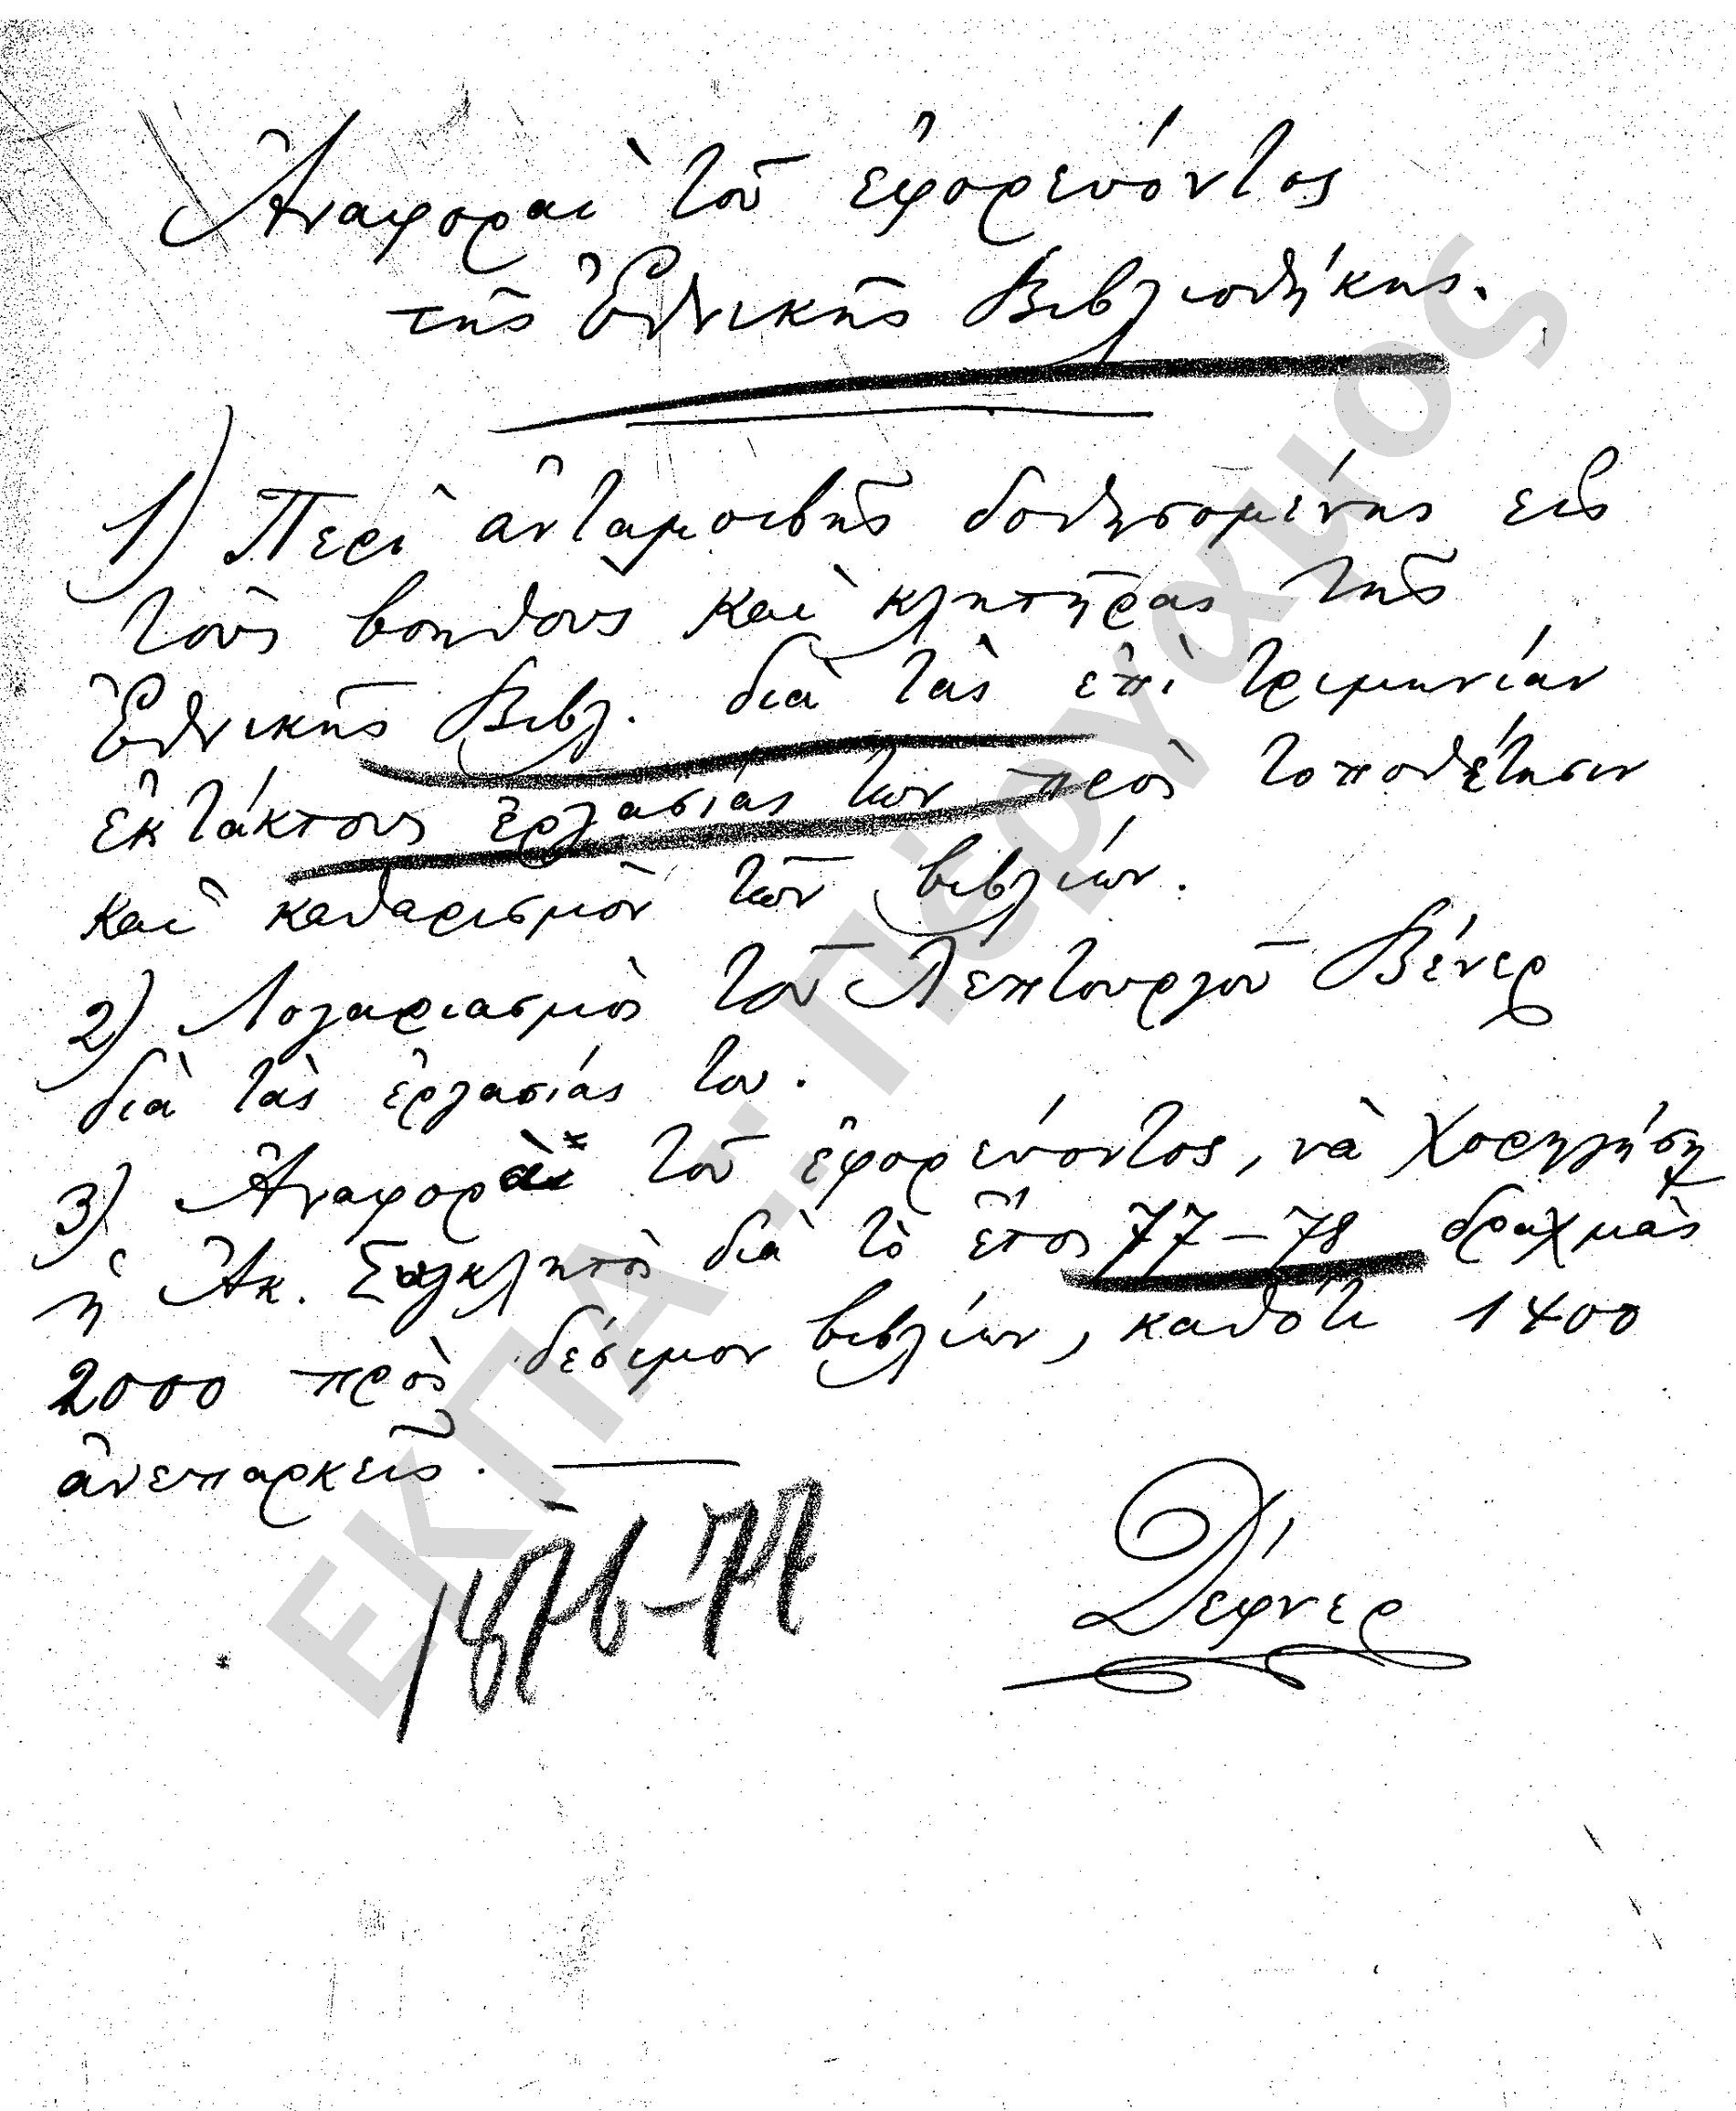 Ἀναφοραὶ τοῦ ἐφορεύοντος
τῆς Ἐθνικῆς Βιβλιοθήκης.
1) Περὶ ἀνταμοιβῆς δοθησομένης εἰς
τοὺς βοηθοὺς καὶ κλητῆρας τῆς
Ἐθνικῆς Βιβλ. διὰ τὰς ἐπὶ τριμηνίαν
ἐκτάκτους ἐργασίας των πρὸς τοποθέτησιν
καὶ καθαρισμὸν τῶν βιβλίων.
2) Λογαριασμὸς τοῦ Λεπτουργοῦ Βένερ
διὰ τὰς ἐργασίας του.
3) Ἀναφορὰ τοῦ ἐφορεύοντος, νὰ χορηγήσῃ
ἡ Ἀκ. Σύγκλητος διὰ τὸ ἔτος 77–78 δραχμὰς
2000 πρὸς δέσιμον βιβλίων, καθότι 1400
ἀνεπαρκεῖς. —
1876–77
Δέφνερ
ΕΚΠΑ... Πέργαμος